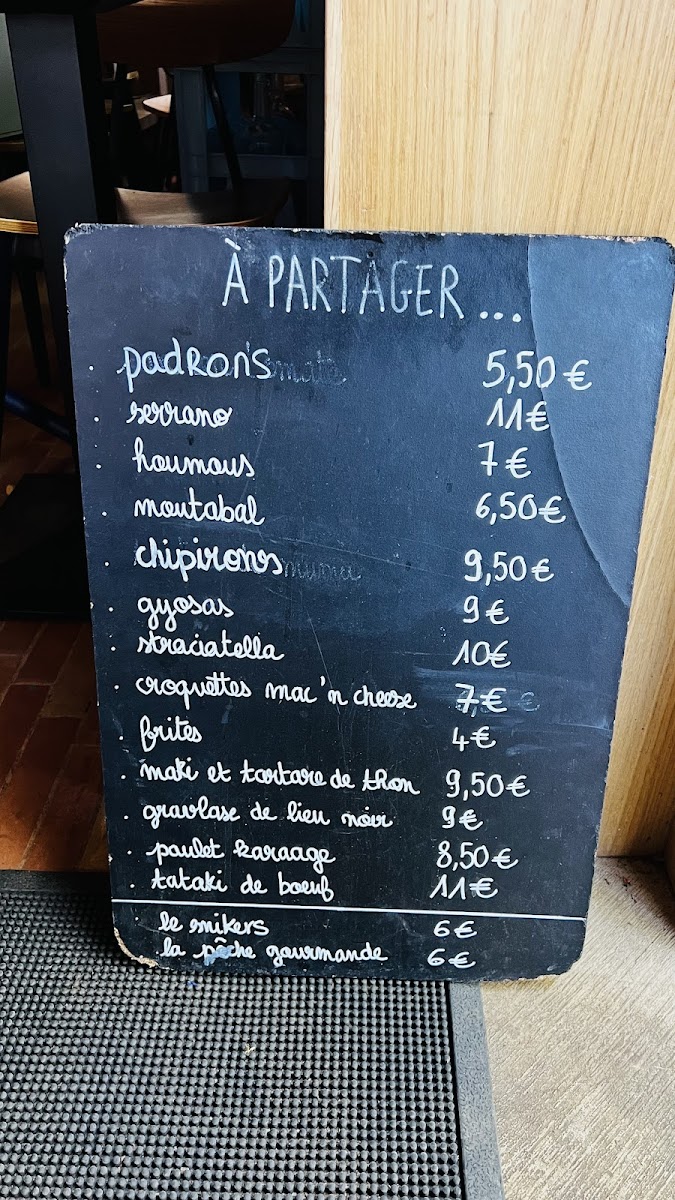 À PARTAGER...
. padrons 5,50€
. serrano 11€
. houmous 7€
. moutabal 6,50€
. chipirons 9,50€
. gyosas 9€
. straciatella 10€
. croquettes mac'n cheese 7€
. frites 4€
. maki et tartare de thon 9,50€
. gravlase de lieu noir 9€
. poulet karaage 8,50€
. tataki de boeuf 11€
le snikers 6€
la pêche gourmande 6€